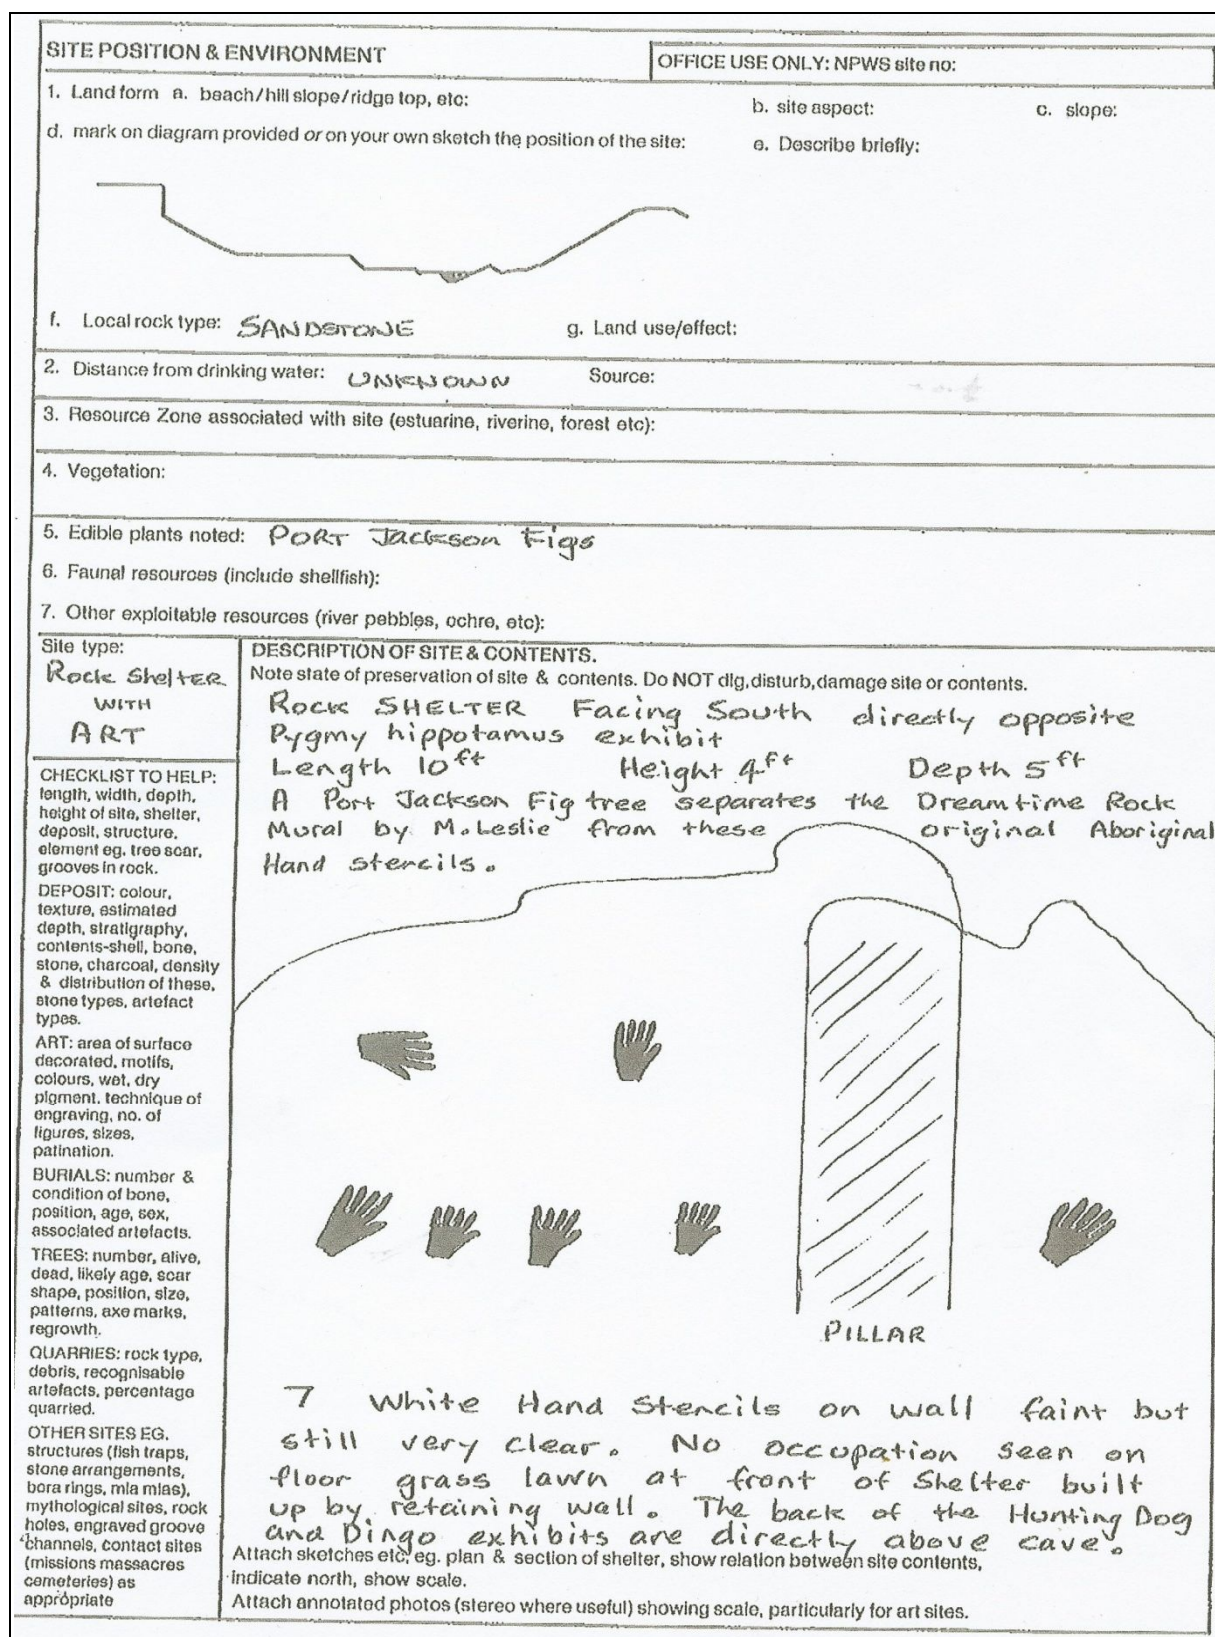 SITE POSITION & ENVIRONMENT
OFFICE USE ONLY: NPWS site no:
1. Land form a. beach/hill slope/ridge top, etc:
b. site aspect:
c. slope:
d. mark on diagram provided or on your own sketch the position of the site:
e. Describe briefly:
f. Local rock type: SANDSTONE
g. Land use/effect:
2. Distance from drinking water: UNKNOWN
Source:
3. Resource Zone associated with site (estuarine, riverine, forest etc):
4. Vegetation:
5. Edible plants noted: PORT Jackson Figs
6. Faunal resources (include shellfish):
7. Other exploitable resources (river pebbles, ochre, etc):
Site type:
Rock Shelter
WITH
ART
CHECKLIST TO HELP:
length, width, depth,
height of site, shelter,
deposit, structure,
element eg. tree scar,
grooves in rock.
DEPOSIT: colour,
texture, estimated
depth, stratigraphy,
contents-shell, bone,
stone, charcoal, density
& distribution of these,
stone types, artefact
types.
ART: area of surface
decorated, motifs,
colours, wet, dry
pigment, technique of
engraving, no. of
figures, sizes,
patination.
BURIALS: number &
condition of bone,
position, age, sex,
associated artefacts.
TREES: number, alive,
dead, likely age, scar
shape, position, size,
patterns, axe marks,
regrowth.
QUARRIES: rock type,
debris, recognisable
artefacts, percentage
quarried.
OTHER SITES EG.
structures (fish traps,
stone arrangements,
bora rings, mia mias),
mythological sites, rock
holes, engraved groove
channels, contact sites
(missions massacres
cemeteries) as
appropriate
DESCRIPTION OF SITE & CONTENTS.
Note state of preservation of site & contents. Do NOT dig,disturb,damage site or contents.
Rock SHELTER Facing South directly opposite
Pygmy hippotamus exhibit
Length 10ft Height 4ft Depth 5ft
A Port Jackson Fig tree separates the Dreamtime Rock
Mural by M.Leslie from these original Aboriginal
Hand stencils.
PILLAR
7 White Hand Stencils on wall faint but
still very clear. No occupation seen on
floor grass lawn at front of Shelter built
up by retaining wall. The back of the Hunting Dog
and Dingo exhibits are directly above cave.
Attach sketches etc, eg. plan & section of shelter, show relation between site contents,
indicate north, show scale.
Attach annotated photos (stereo where useful) showing scale, particularly for art sites.